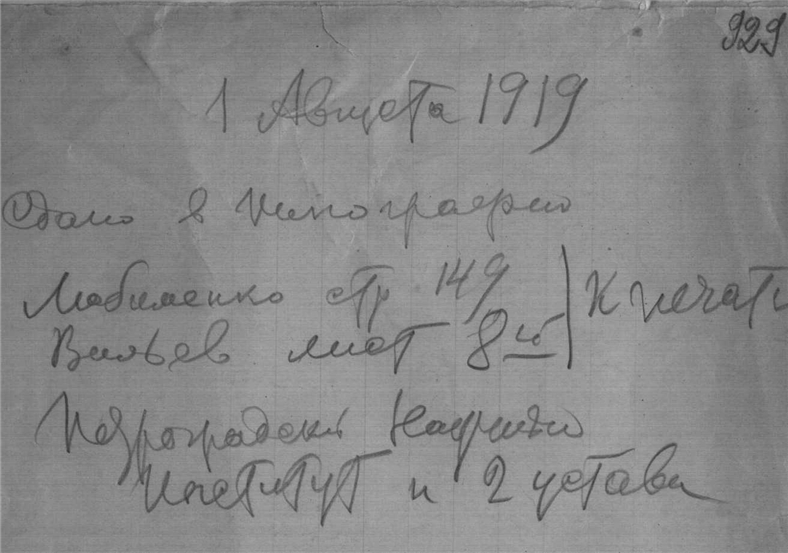 929
1 Августа 1919
Сдано в типографию
Любименко стр 149 } К печати
Вильев лист 8 й
Петроградский Научный
Институт и 2 устава